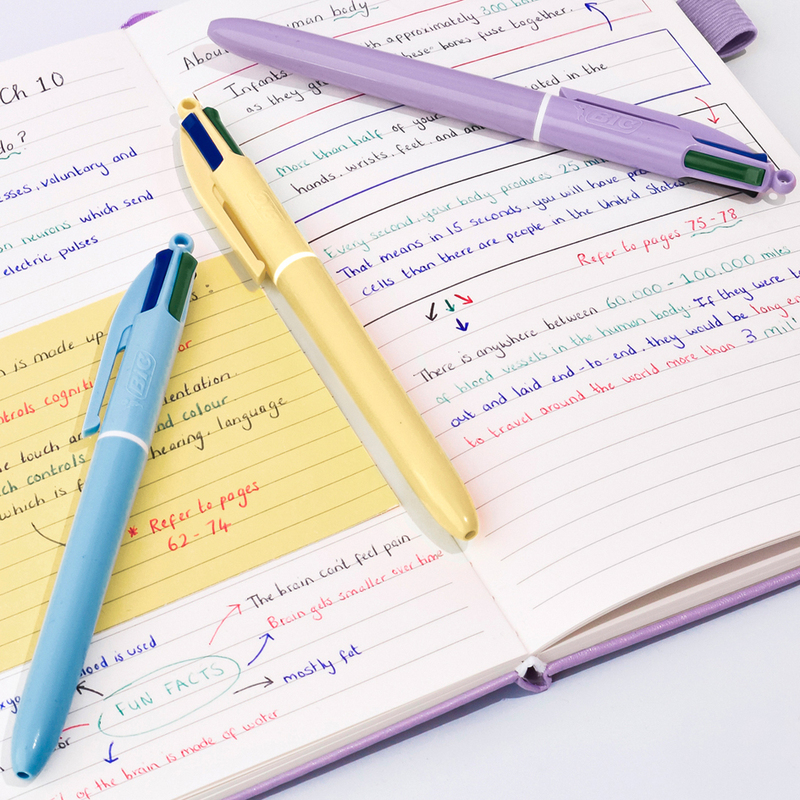 Ch 10
do?
esses, voluntary and
on neurons which send
electric pulses
is made up
or
ntrols cogniti
dentation
e touch ar nd colour
ch controls hearing, language
which is f
* Refer to pages
62 - 74
The brain can't feel pain
Brain gets smaller over time
lood is used
mostly fat
FUN FACTS
or
of the brain is made of water
Abou human body
Infants th approximately 300
as they gr these bones fuse together.
ated in the
More than half of your
hands, wrists, feet, and an
Every second, your body produces 25 mil
That means in 15 seconds, you will have pro
cells than there are people in the United States
Refer to pages 75 - 78
There is anywhere between 60,000 - 100,000 miles
of blood vessels in the human body. If they were t
out and laid end-to-end, they would be long en
to travel around the world more than 3 mil
BIC
BIC